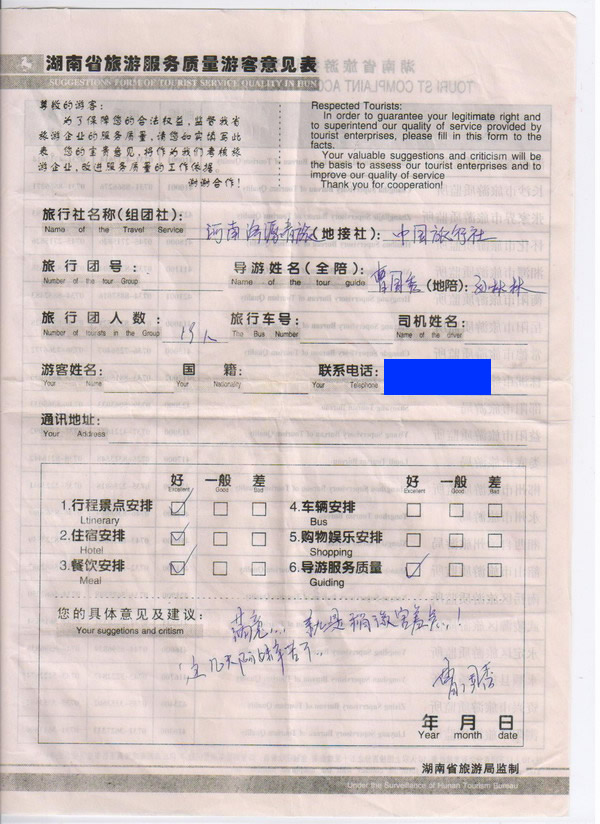 湖南省旅游服务质量游客意见表
SUGGESTIONS FORM OF TOURIST SERVICE QUALITY IN HUNAN
尊敬的游客:
为了保障您的合法权益,监督我省
旅游企业的服务质量,请您如实填写此
表。您的宝贵意见,将作为我们考核旅
游企业,改进服务质量的工作依据。
谢谢合作!
Respected Tourists:
In order to guarantee your legitimate right and
to superintend our quality of service provided by
tourist enterprises, please fill in this form to the
facts.
Your valuable suggestions and criticism will be
the basis to assess our tourist enterprises and to
improve our quality of service
Thank you for cooperation!
旅行社名称(组团社): 河南 青旅 (地接社): 中国旅行社
Name of the Travel Service
旅行团号: 导游姓名(全陪): 曹国秀 (地陪): 林林
Number of the tour Group Name of the tour guide
旅行团人数: 19人 旅行车号: 司机姓名:
Number of tourists in the Group The Bus Number Name of the driver
游客姓名: 国籍: 联系电话:
Your Name Your Nationality Your Telephone
通讯地址:
Your Address
好 一般 差 好 一般 差
Excellent Good Bad Excellent Good Bad
1.行程景点安排 4.车辆安排
Ltinerary Bus
2.住宿安排 5.购物娱乐安排
Hotel Shopping
3.餐饮安排 6.导游服务质量
Meal Guiding
您的具体意见及建议: 满意... 就是稍微害羞点..!
Your suggetions and critism
这几天阿妹辛苦了..
曹国秀
年 月 日
Year month date
湖南省旅游局监制
Under the Surveillance of Hunan Tourism Bureau